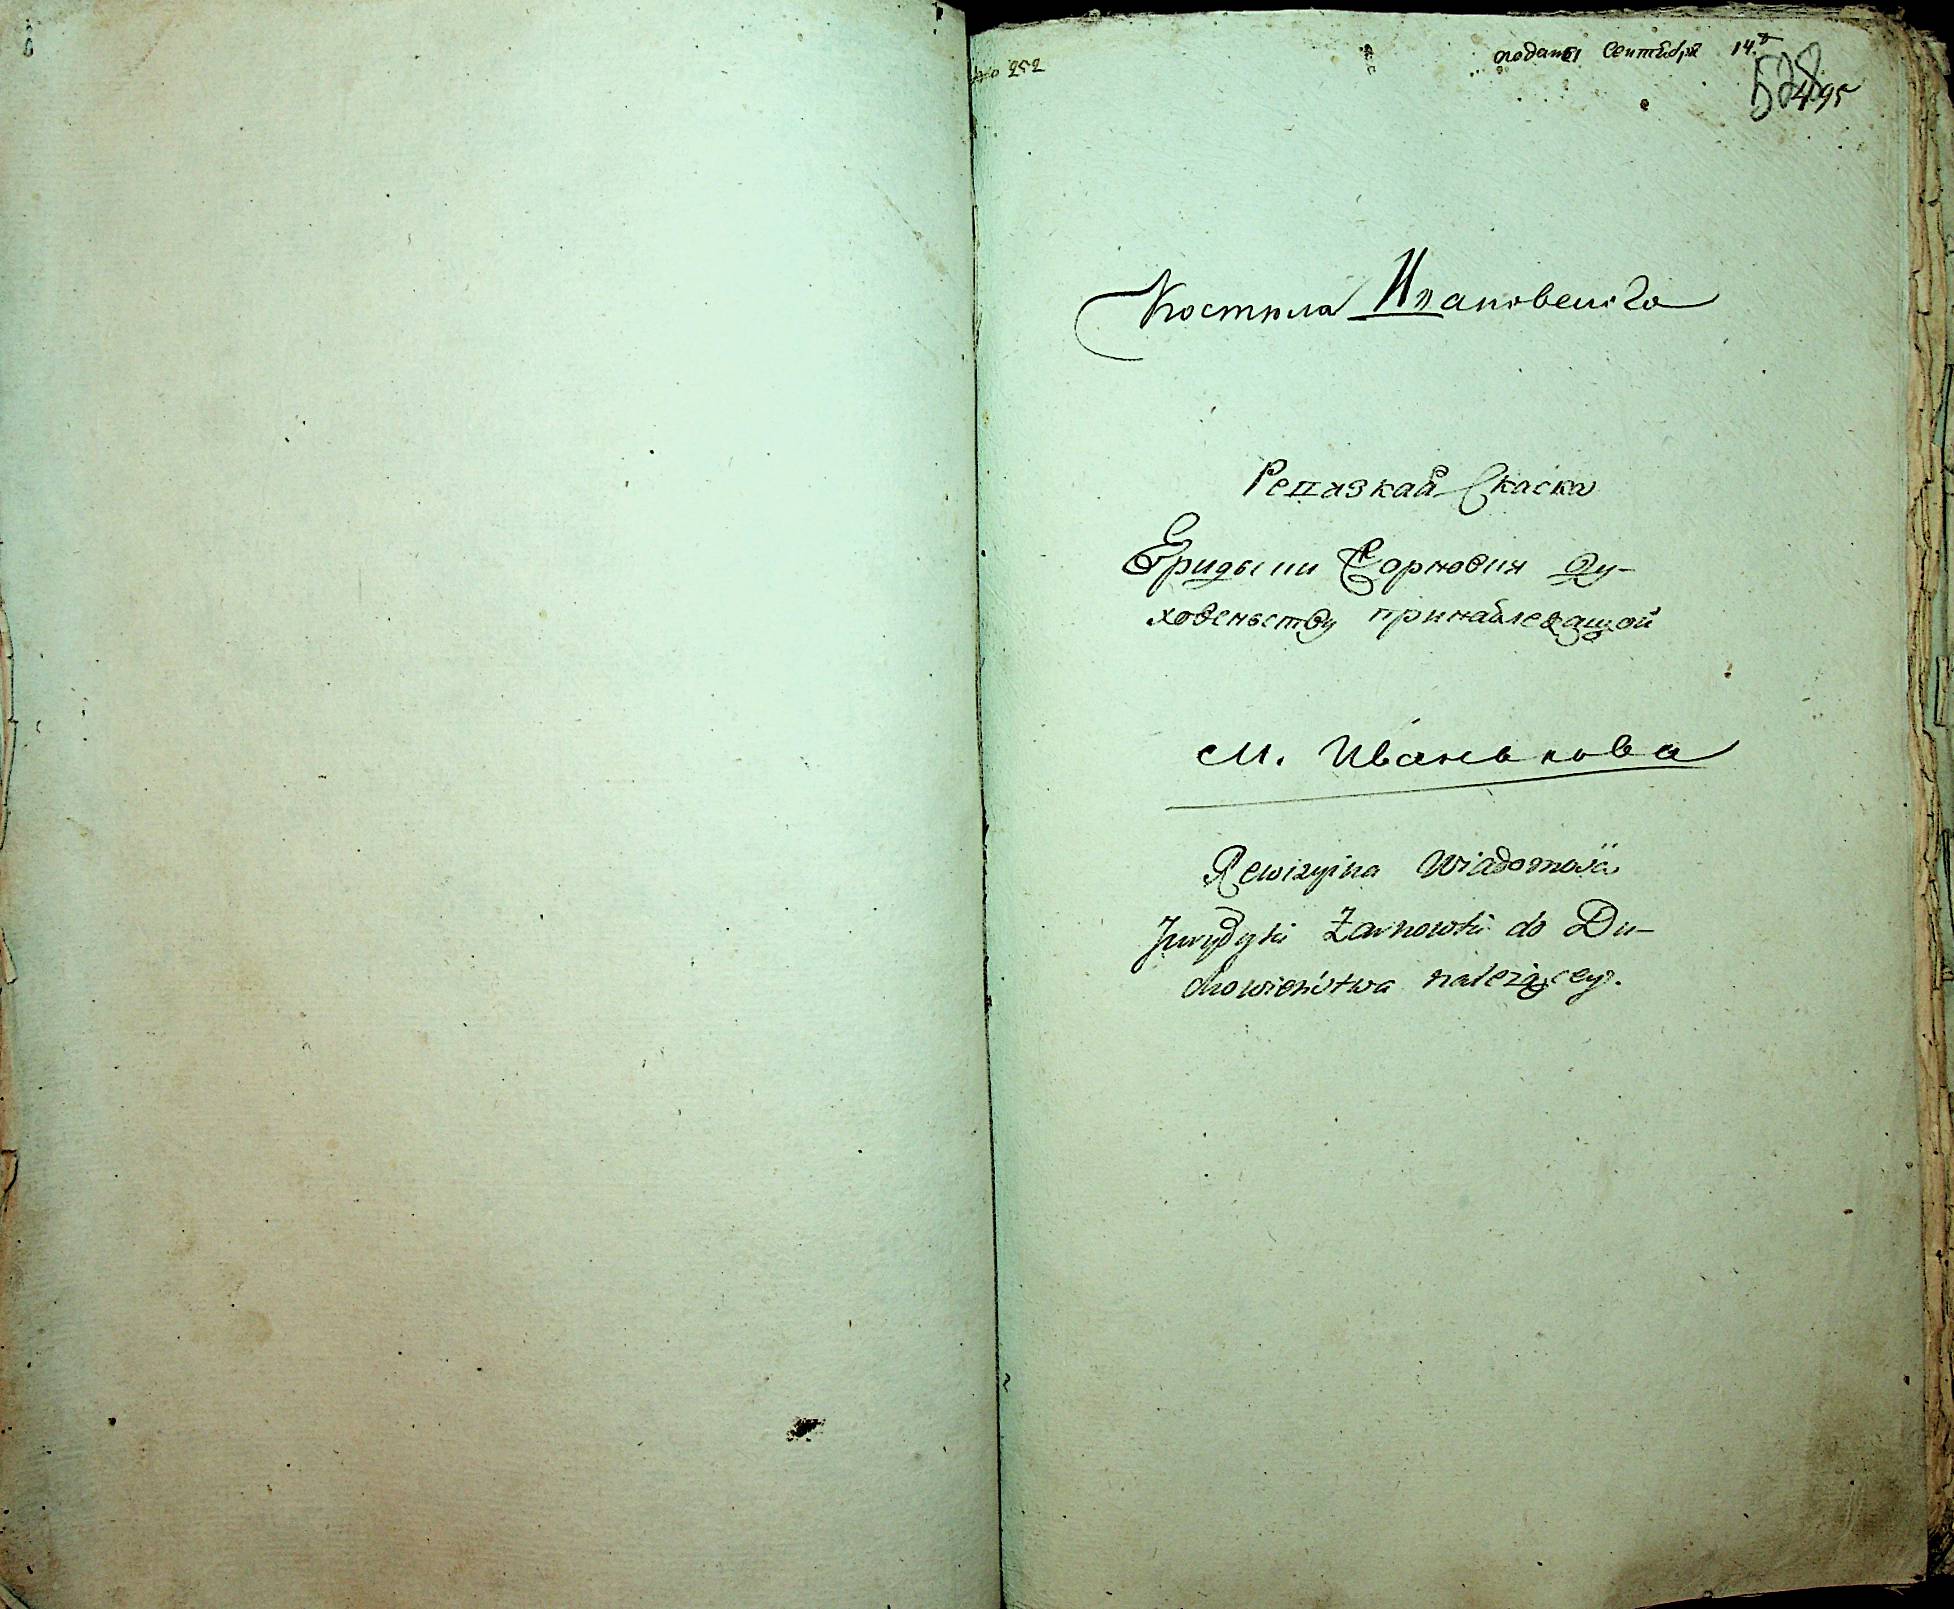 252
поданы Сентября 14.
528
495
Костела Ивановского
Ревизкая Скаска
Юридыки Жорновки Ду-
ховенству принадлежащой
м. Иванькова
Rewizyina Wiadomość
Jurydyki Żarnowki do Du-
chowieństwa należącey.